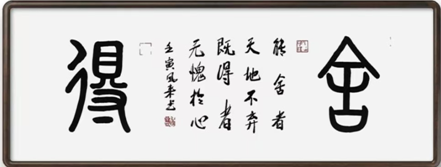 舍
能舍者
天地不弃
既得者
无愧於心
壬寅风来书
得